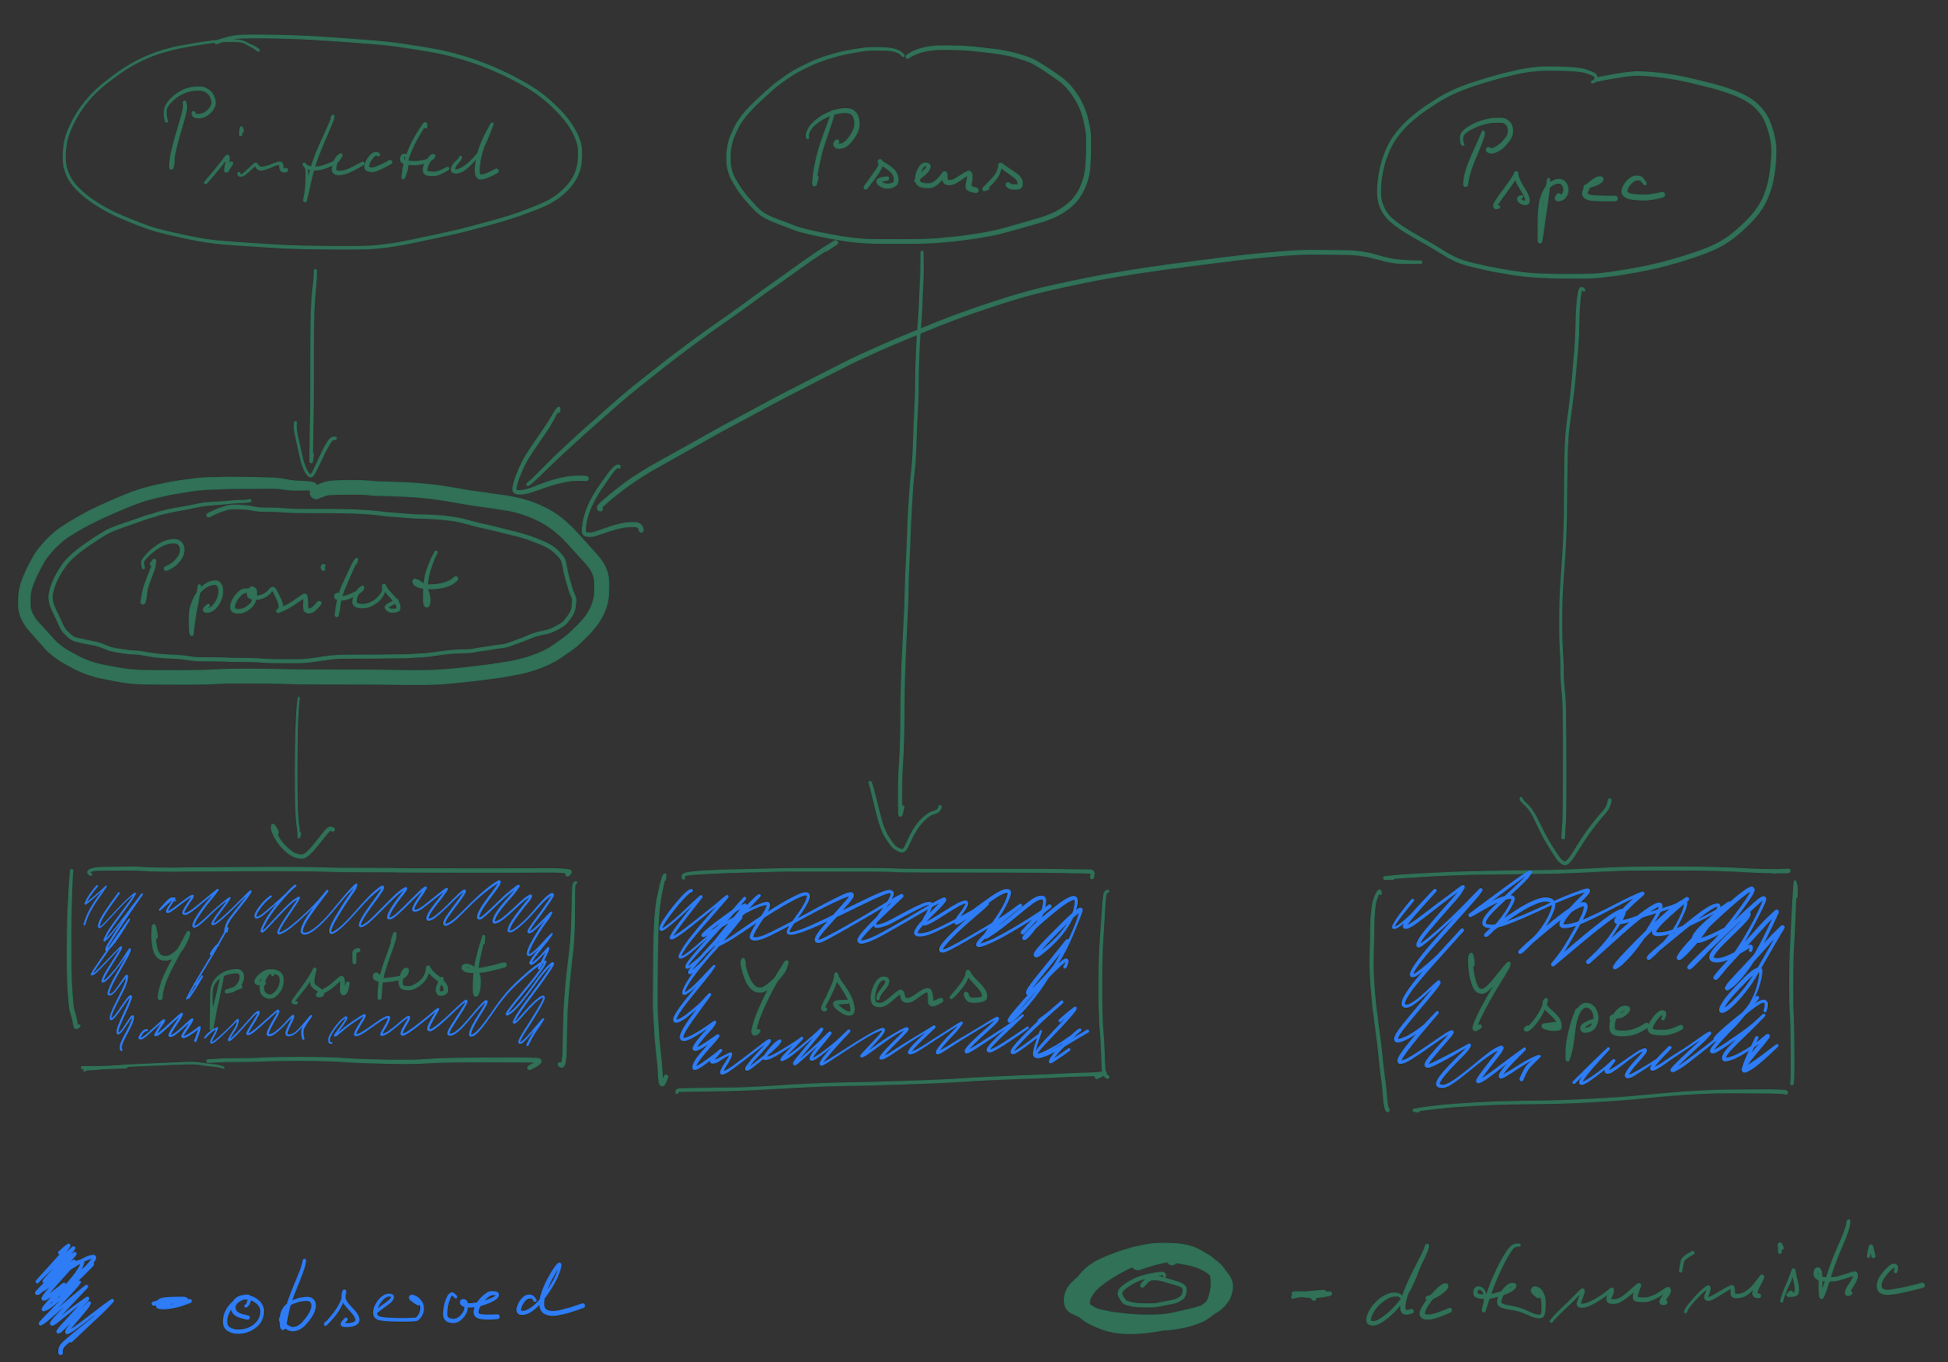 P infected
P sens
P spec
P positest
Y positest
Y sens
Y spec
- observed
- deterministic